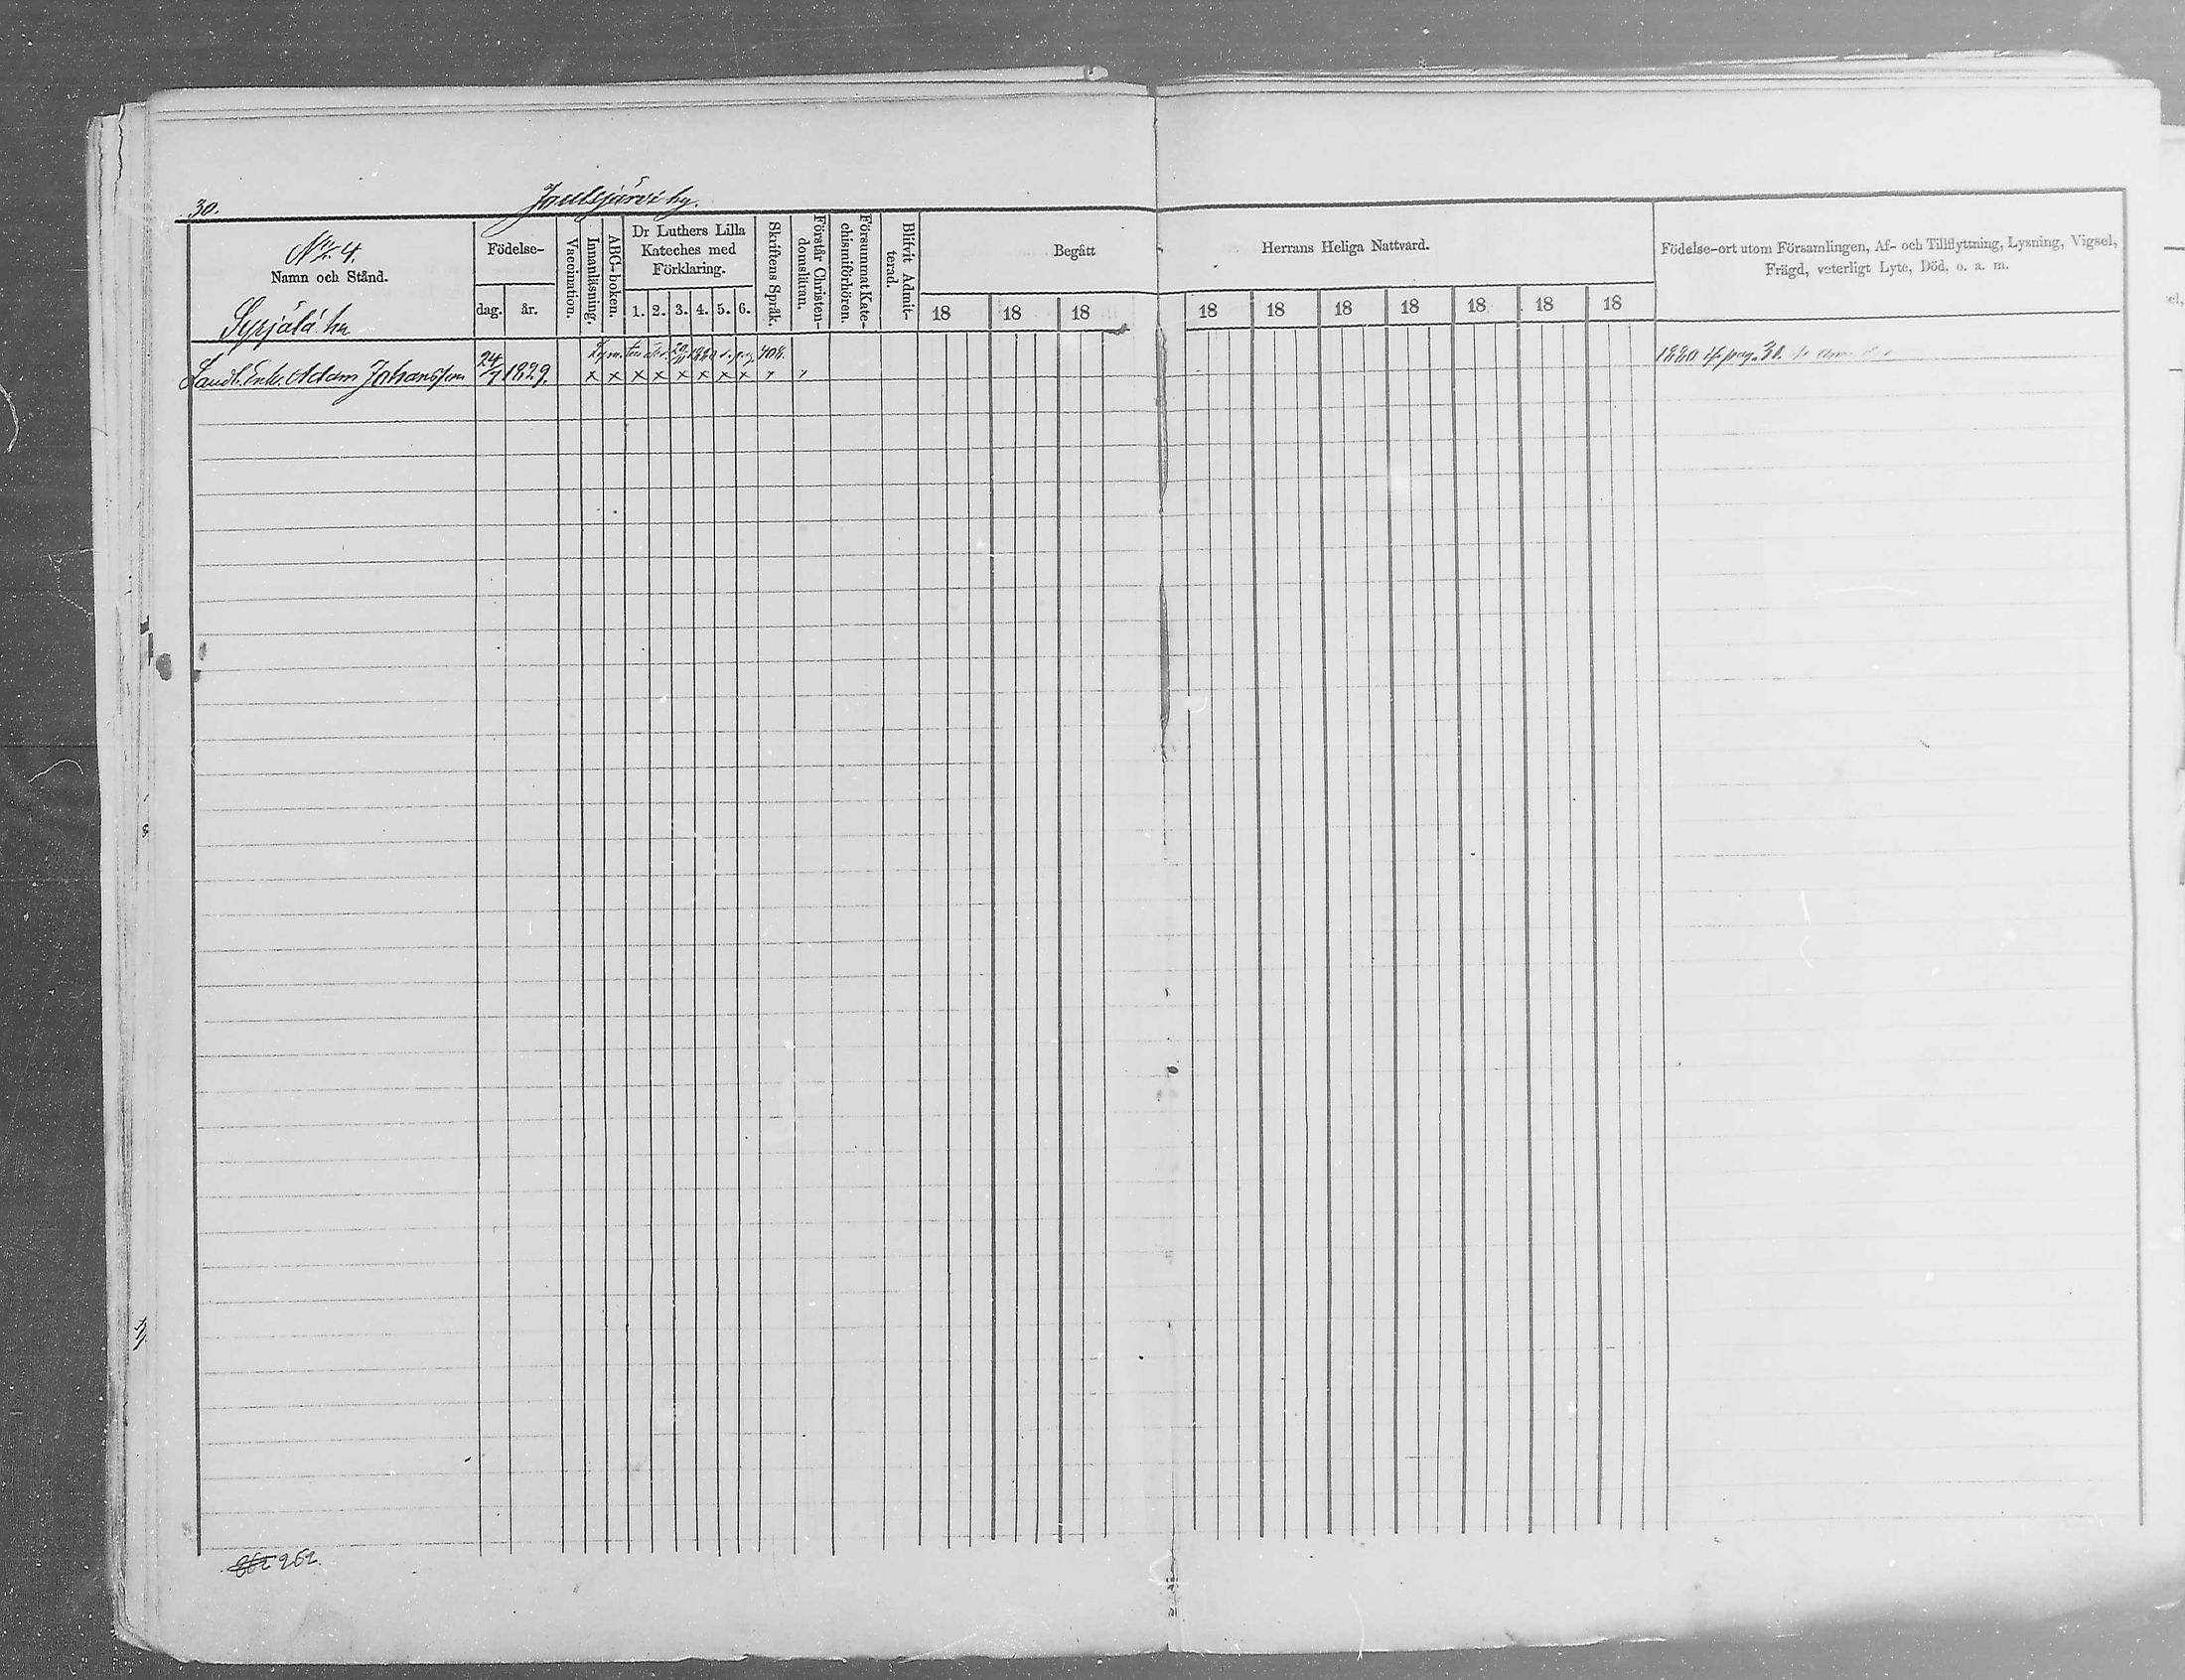 30.
Joutsjärvi by.
N:o 4.
Namn och Stånd.
Syrjälä hn
Födelse-
dag.
år.
Vaccination.
Innanläsning.
ABC-boken.
Dr Luthers Lilla
Kateches med
Förklaring.
1. 2. 3. 4. 5. 6.
Skriftens Språk.
Förstår Christen-
domsläran.
Försummat Kate-
chismiförhören.
Blifvit Admit-
terad.
Begått
Herrans Heliga Nattvard.
18 18 18 18 18 18 18 18 18 18
Födelse-ort utom Församlingen, Af- och Tillflyttning, Lysning, Vigsel,
Frägd, veterligt Lyte, Död, o. a. m.
1880 pag. 31.
Landb. Enkl. Adam Johansson 24/7 1829. x x x x x x x x x x
262 262.